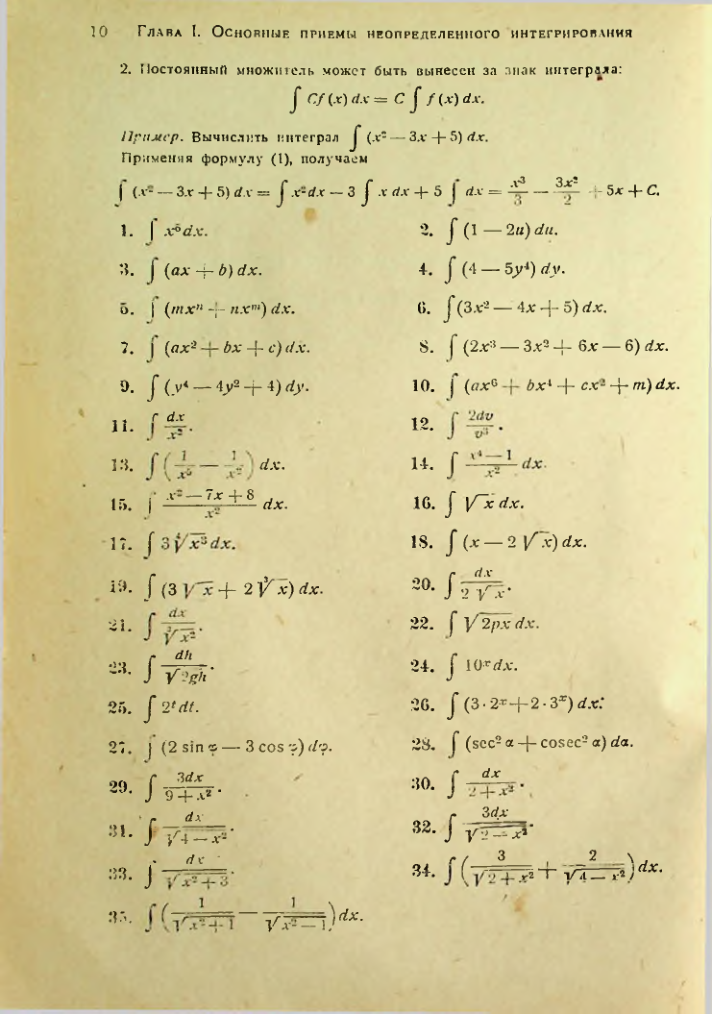 10 Глава I. Основные приемы неопределенного интегрирования
2. Постоянный множитель может быть вынесен за знак интеграла:
∫ Cf (x) dx = C ∫ f (x) dx.
Пример. Вычислить интеграл ∫ (x² — 3x + 5) dx.
Применяя формулу (1), получаем
∫ (x² — 3x + 5) dx = ∫ x² dx — 3 ∫ x dx + 5 ∫ dx = x³/3 — 3x²/2 + 5x + C.
1. ∫ x⁶ dx. 2. ∫ (1 — 2u) du.
3. ∫ (ax + b) dx. 4. ∫ (4 — 5y⁴) dy.
5. ∫ (mxⁿ + nxᵐ) dx. 6. ∫ (3x² — 4x + 5) dx.
7. ∫ (ax² + bx + c) dx. 8. ∫ (2x³ — 3x² + 6x — 6) dx.
9. ∫ (y⁴ — 4y² + 4) dy. 10. ∫ (ax⁶ + bx⁴ + cx² + m) dx.
11. ∫ dx/x². 12. ∫ 2dv/v³.
13. ∫ (1/x⁵ — 1/x²) dx. 14. ∫ (x⁴ — 1)/x² dx.
15. ∫ (x² — 7x + 8)/x² dx. 16. ∫ √x dx.
17. ∫ 3 ∜x³ dx. 18. ∫ (x — 2 √x) dx.
19. ∫ (3 √x + 2 ∛x) dx. 20. ∫ dx/(2 √x).
21. ∫ dx/∛x². 22. ∫ √(2px) dx.
23. ∫ dh/√(2gh). 24. ∫ 10ˣ dx.
25. ∫ 2ᵗ dt. 26. ∫ (3 · 2ˣ + 2 · 3ˣ) dx.
27. ∫ (2 sin φ — 3 cos φ) dφ. 28. ∫ (sec² α + cosec² α) dα.
29. ∫ 3dx/(9 + x²). 30. ∫ dx/(2 + x²).
31. ∫ dx/√(4 — x²). 32. ∫ 3dx/√(2 — x²).
33. ∫ dx/√(x² + 3). 34. ∫ (3/√(2 + x²) + 2/√(4 — x²)) dx.
35. ∫ (1/√(x² + 1) — 1/√(x² — 1)) dx.